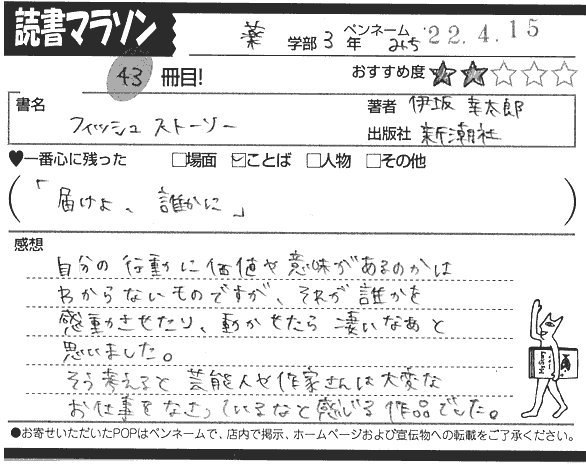 読書マラソン
薬 学部 3 年 ペンネーム みち '22.4.15
43 冊目! おすすめ度 ★★☆☆☆
書名 フィッシュストーリー
著者 伊坂 幸太郎
出版社 新潮社
♥一番心に残った □場面 ☑ことば □人物 □その他
(「届けよ、誰かに」)
感想
自分の行動に価値や意味があるのかは
わからないものですが、それが誰かを
感動させたり、動かせたら凄いなあと
思いました。
そう考えると芸能人や作家さんは大変な
お仕事をなさっているなと感じる作品でした。
My Story
●お寄せいただいたPOPはペンネームで、店内で掲示、ホームページおよび宣伝物への転載をご了承ください。